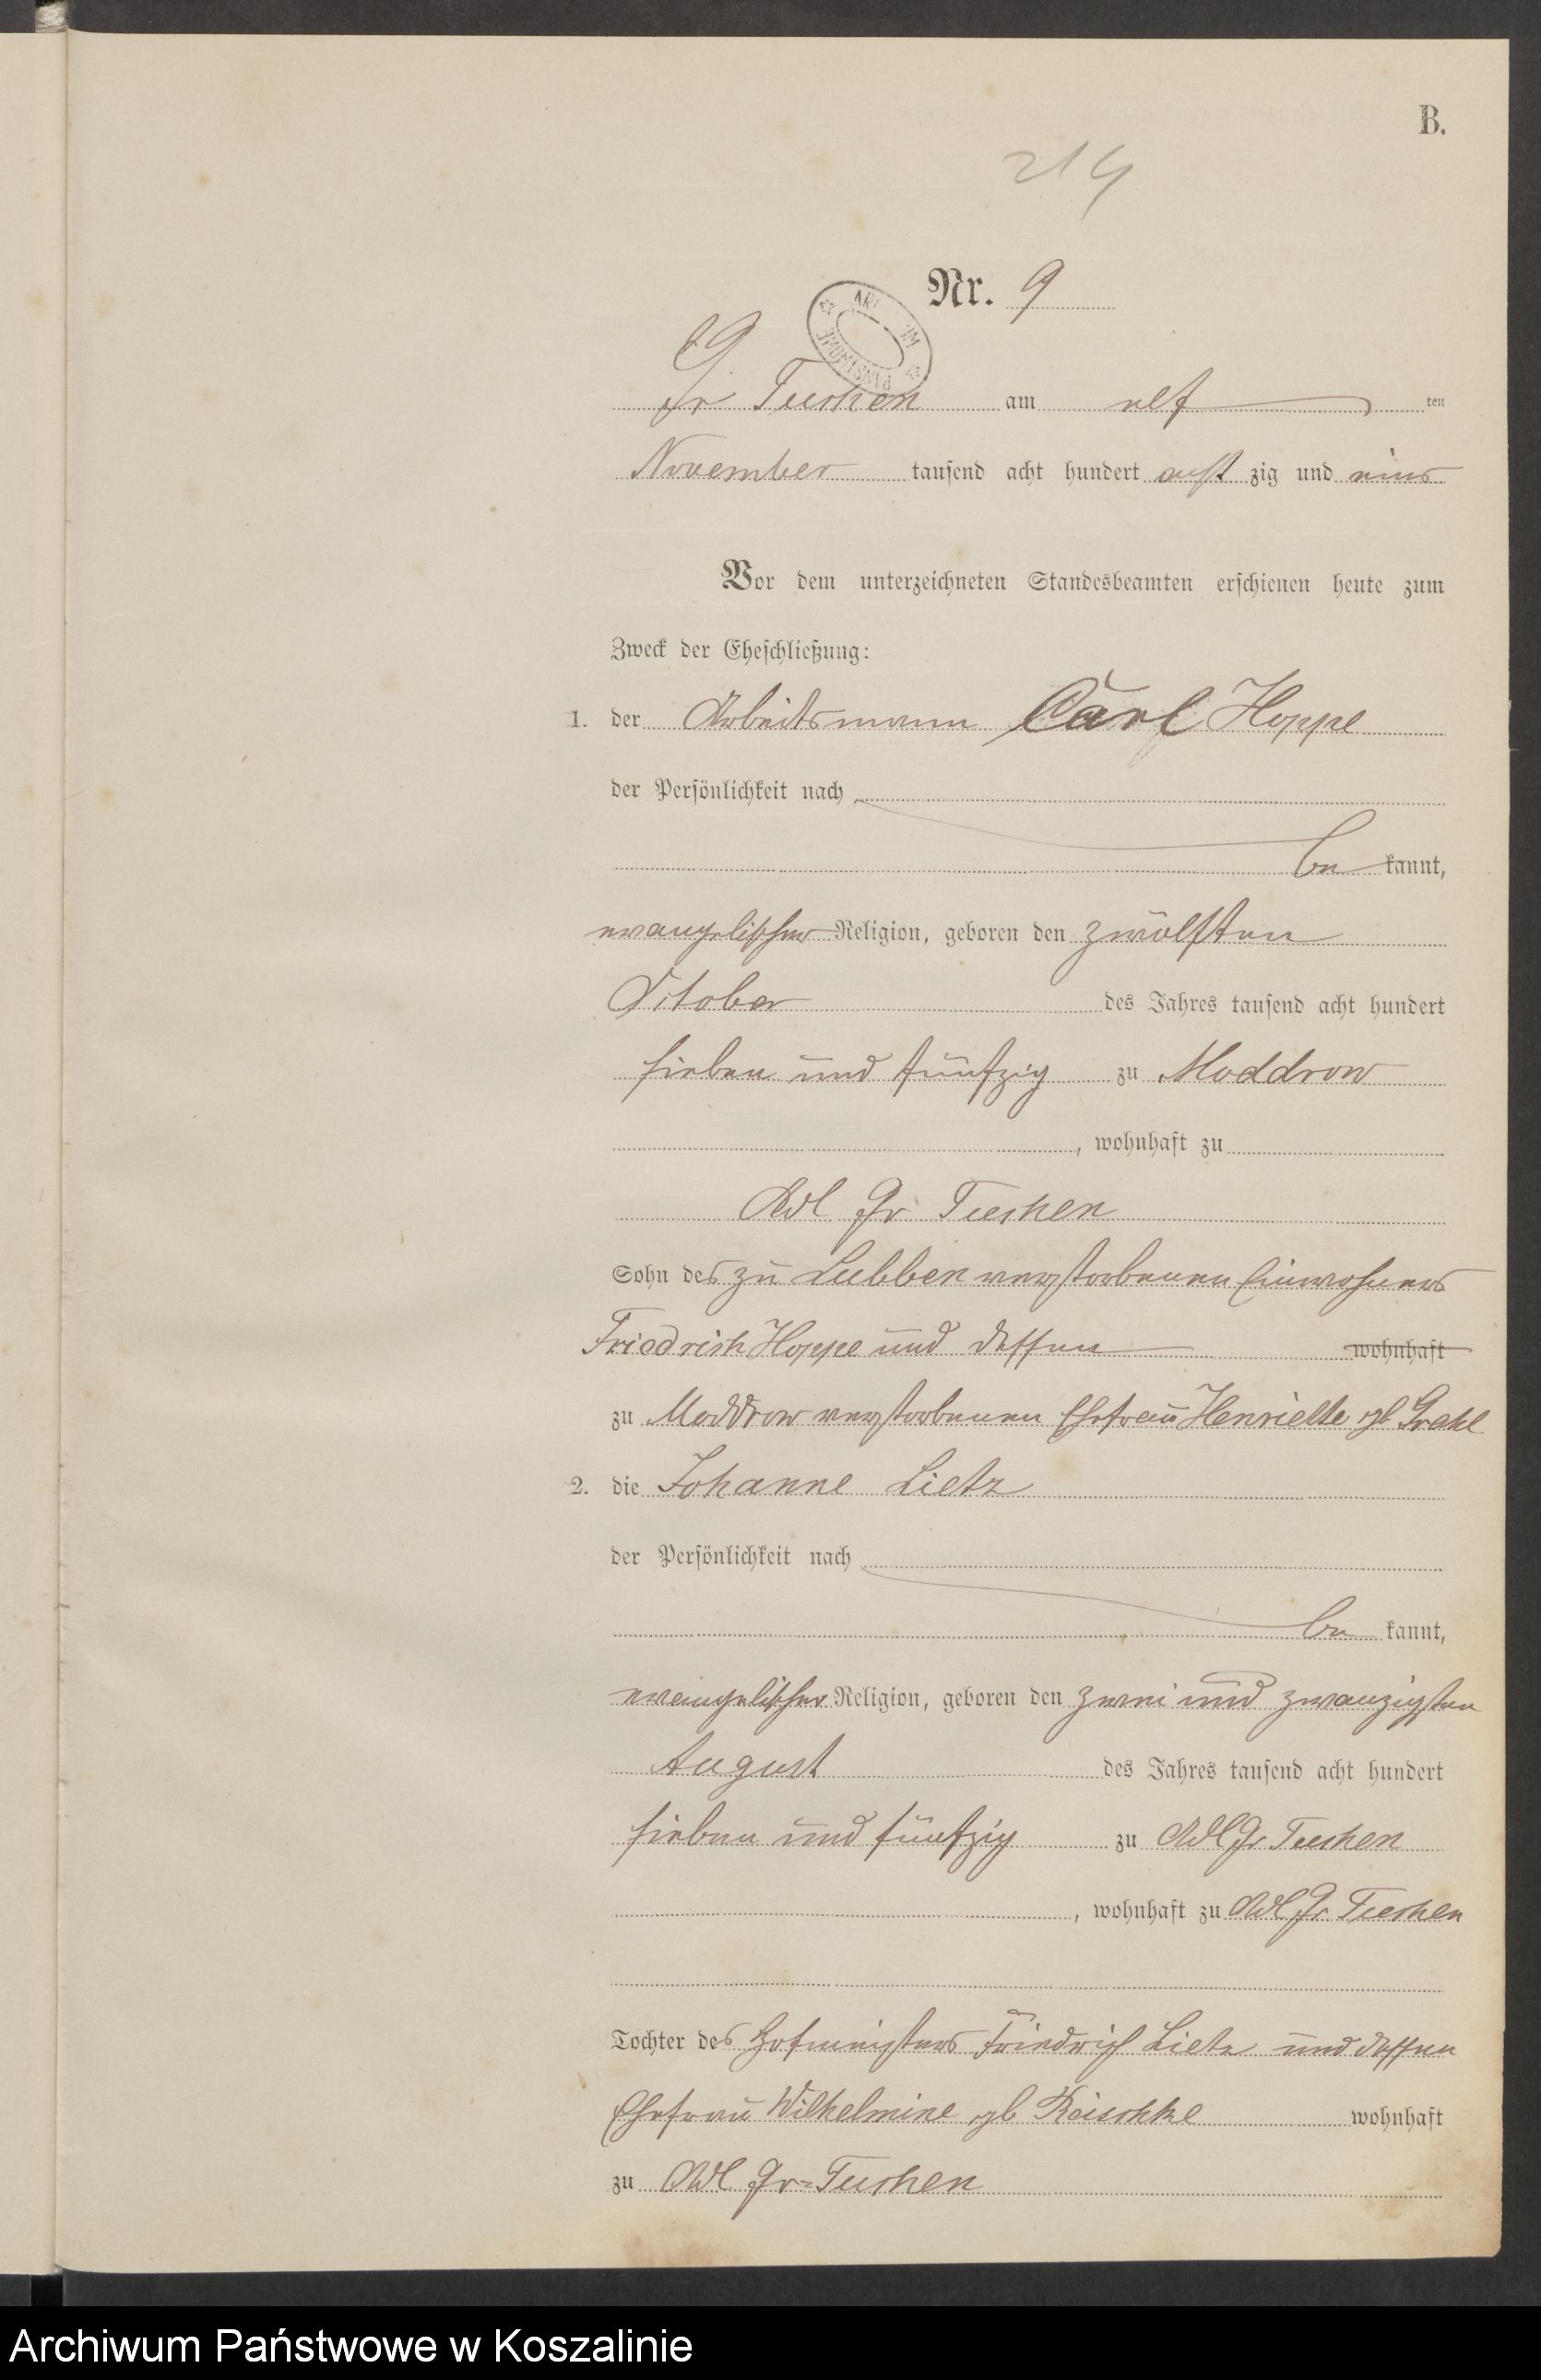 B.
214
Nr. 9
Gr Tuchen am elf ten
November tausend acht hundert acht zig und eins
Vor dem unterzeichneten Standesbeamten erschienen heute zum
Zweck der Eheschließung:
1. der Arbeitsmann Carl Hoppe
der Persönlichkeit nach
be kannt,
evangelischer Religion, geboren den zwölften
October des Jahres tausend acht hundert
sieben und fünfzig zu Moddrow
, wohnhaft zu
Adl Gr Tuchen
Sohn des zu Lubben verstorbenen Einwohners
Friedrich Hoppe und dessen wohnhaft
zu Moddrow verstorbenen Ehefrau Henriette gb Grahl
2. die Johanne Lietz
der Persönlichkeit nach
be kannt,
evangelischer Religion, geboren den zwei und zwanzigsten
August des Jahres tausend acht hundert
sieben und fünfzig zu Adl Gr Tuchen
, wohnhaft zu Adl Gr Tuchen
Tochter des Hofmeisters Friedrich Lietz und dessen
Ehefrau Wilhelmine gb Raischke wohnhaft
zu Adl Gr-Tuchen
Archiwum Państwowe w Koszalinie